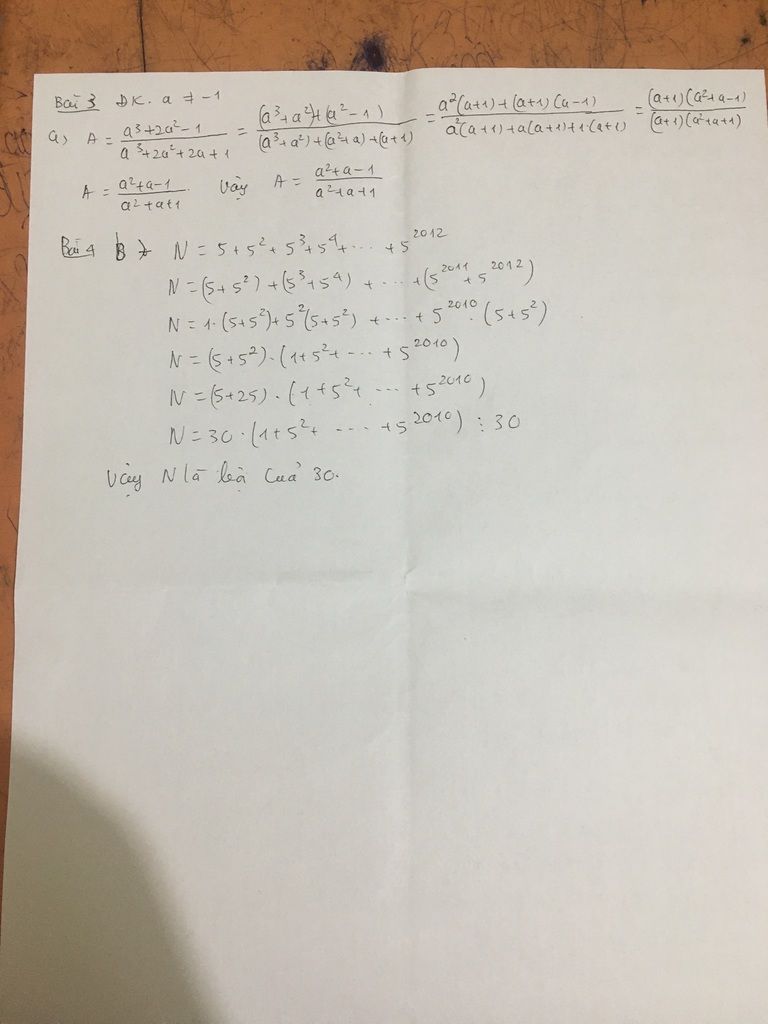 Bài 3 ĐK. a ≠ -1
a, A = (a³+2a²-1)/(a³+2a²+2a+1) = ((a³+a²)+(a²-1))/((a³+a²)+(a²+a)+(a+1)) = (a²(a+1)+(a+1)(a-1))/(a²(a+1)+a(a+1)+1·(a+1)) = ((a+1)(a²+a-1))/((a+1)(a²+a+1))
A = (a²+a-1)/(a²+a+1). Vậy A = (a²+a-1)/(a²+a+1)
Bài 4 b, N = 5+5²+5³+5⁴+...+5²⁰¹²
N = (5+5²)+(5³+5⁴)+...+(5²⁰¹¹+5²⁰¹²)
N = 1·(5+5²)+5²(5+5²)+...+5²⁰¹⁰·(5+5²)
N = (5+5²)·(1+5²+...+5²⁰¹⁰)
N = (5+25)·(1+5²+...+5²⁰¹⁰)
N = 30·(1+5²+...+5²⁰¹⁰) ⋮ 30
Vậy N là bội của 30.